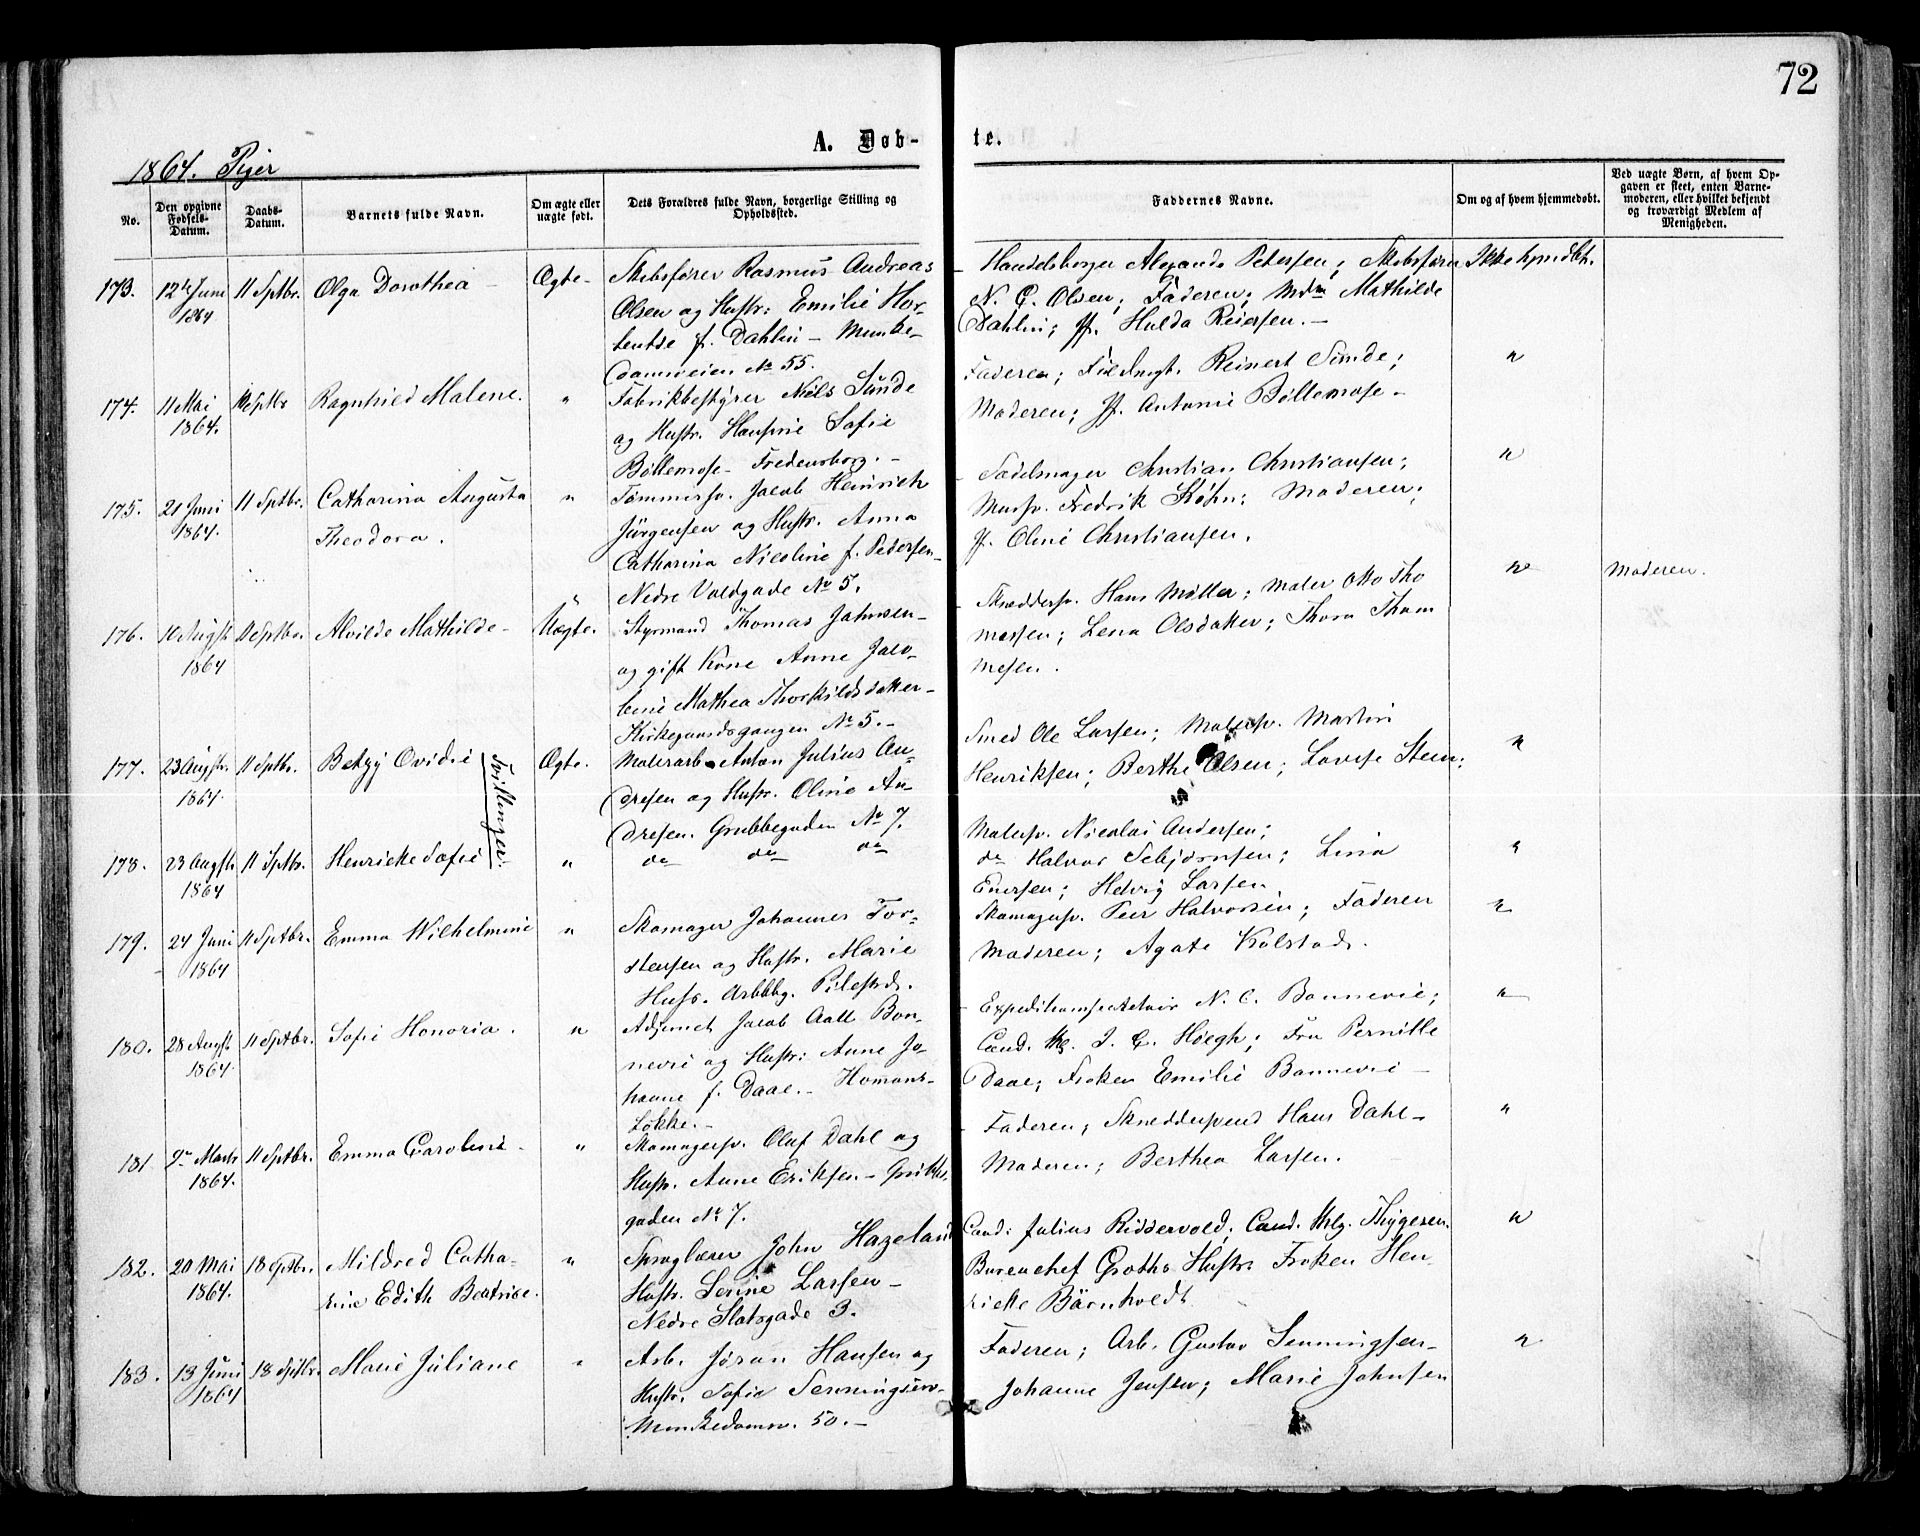 72
A. Døb-
te.
1864. Piger
No.
Den opgivne Fødsels-Datum.
Daabs-Datum.
Barnets fulde Navn.
Om ægte eller uægte født.
Dets Forældres fulde Navn, borgerlige Stilling og Opholdssted.
Faddernes Navne.
Om og af hvem hjemmedøbt.
Ved uægte Børn, af hvem Op-
gaven er skeet, enten Barne-
moderen, eller hvilket bekjendt
og troværdigt Medlem af
Menigheden.
173. 12te Juni 1864 11 Septbr. Olga Dorothea - Ægte-
Skibsfører Rasmus Andreas
Olsen og Hustr: Emilie Hor-
tentse f. Dahlin - Munke-
damsveien No 55.
Handelsborger Petersen; Skibsfører
N. C. Olsen; Faderen; Mdm Mathilde
Dahlin; Jf. Hulda Reiersen. -
Ikke hjmdbt.
174. 11 Mai 1864. 11 Septbr Ragnhild Malene. "
Fabrikbestyrer Niels Sunde
og Hustr. Hansine Sofie
Bøllemose - Fredensborg. -
Faderen; Reinert Sunde;
Moderen; Jf. Antonie Bøllemose -
"
175. 21 Juni 1864. 11 Septbr. Catharina Augusta
Theodora. "
Tømmersv. Jacob Heinrich
Jürgensen og Hustr. Anna
Catharina Nicoline f. Pedersen-
Nedre Voldgade No 5.
Sadelmager Christian Christiansen;
Mursv. Fredrik Køhn; Moderen;
Jf. Oline Christiansen.
"
176. 10 Augst 1864 11 Septbr Alvilde Mathilde - Uægte.
Styrmand Thomas Johnsen -
og gift Kone Anne Jaco-
bine Mathea Thorkildsdatter -
Kirkegaardsgangen No 5. -
Skræddersv. Hans Møller; Maler Otto Tho
massen; Lena Olsdatter; Thora Thom
mesen.
"
Moderen.
177. 23 Augst. 1864. 11 Septbr. Betzy Ovidie Ægte.
Tvillinger.
Malerarb. Anton Julius An-
dresen og Hustr. Oline An-
dresen. Grubbegaden No 7.
Smed Ole Larsen; Malersv. Martin
Henriksen; Berthe Olsen; Lovise Steen;
"
178. 23 Augst 1864 11 Septbr. Henriette Sofie "
do do do
Malersv. Nicolai Andersen;
do Halvor Sebjørnsen; Lina
Enersen; Hedvig Larsen
"
179. 24 Juni 1864 11 Septbr. Emma Wilhelmine "
Skomager Johannes Tor-
stensen og Hustr. Marie
Huss. Arbbbg. Pilestrd.
Skomagersv. Peer Halvorsen; Faderen
Moderen; Agate Kolstad.
"
180. 28 Augst 1864. 11 Septbr. Sofie Honoria. "
Adjunct Jacob Aall Bon-
nevie og Hustr: Anne Jo-
hanne f. Daae. - Homans-
Løkke. -
Expeditionssecretair N. C. Bonnevie;
Cand. J. C. Høegh; Fru Pernille
Daae; Frøken Emilie Bonnevie -
"
181. 9de Marts 1864. 11 Septbr. Emma Caroline. "
Skomagersv. Oluf Dahl og
Hustr. Anne Eriksen -
gaden No 7.
Faderen; Skræddersvend Hans Dahl -
Moderen; Berthea Larsen.
"
182. 20 Mai 1864. 18 Septbr. Mildred Catha-
rine Edith Beatrice. "
Sproglærer John Hazeland
Hustr. Serine Larsen -
Nedre Slotsgade 3.
Cand: Julius Riddervold; Cand. Thlg. Thygesen.
Bureauchef Groths Hustr. Frøken Hen-
riette Bärnholdt
"
183. 13 Juni 1864 18 Septbr. Marie Juliane "
Arb. Jøran Hansen og
Hustr. Sofie Senningsen -
Munkedamsv. 50. -
Faderen; Arb. Gustav Senningsen -
Johanne Jensen; Marie Johnsen
"